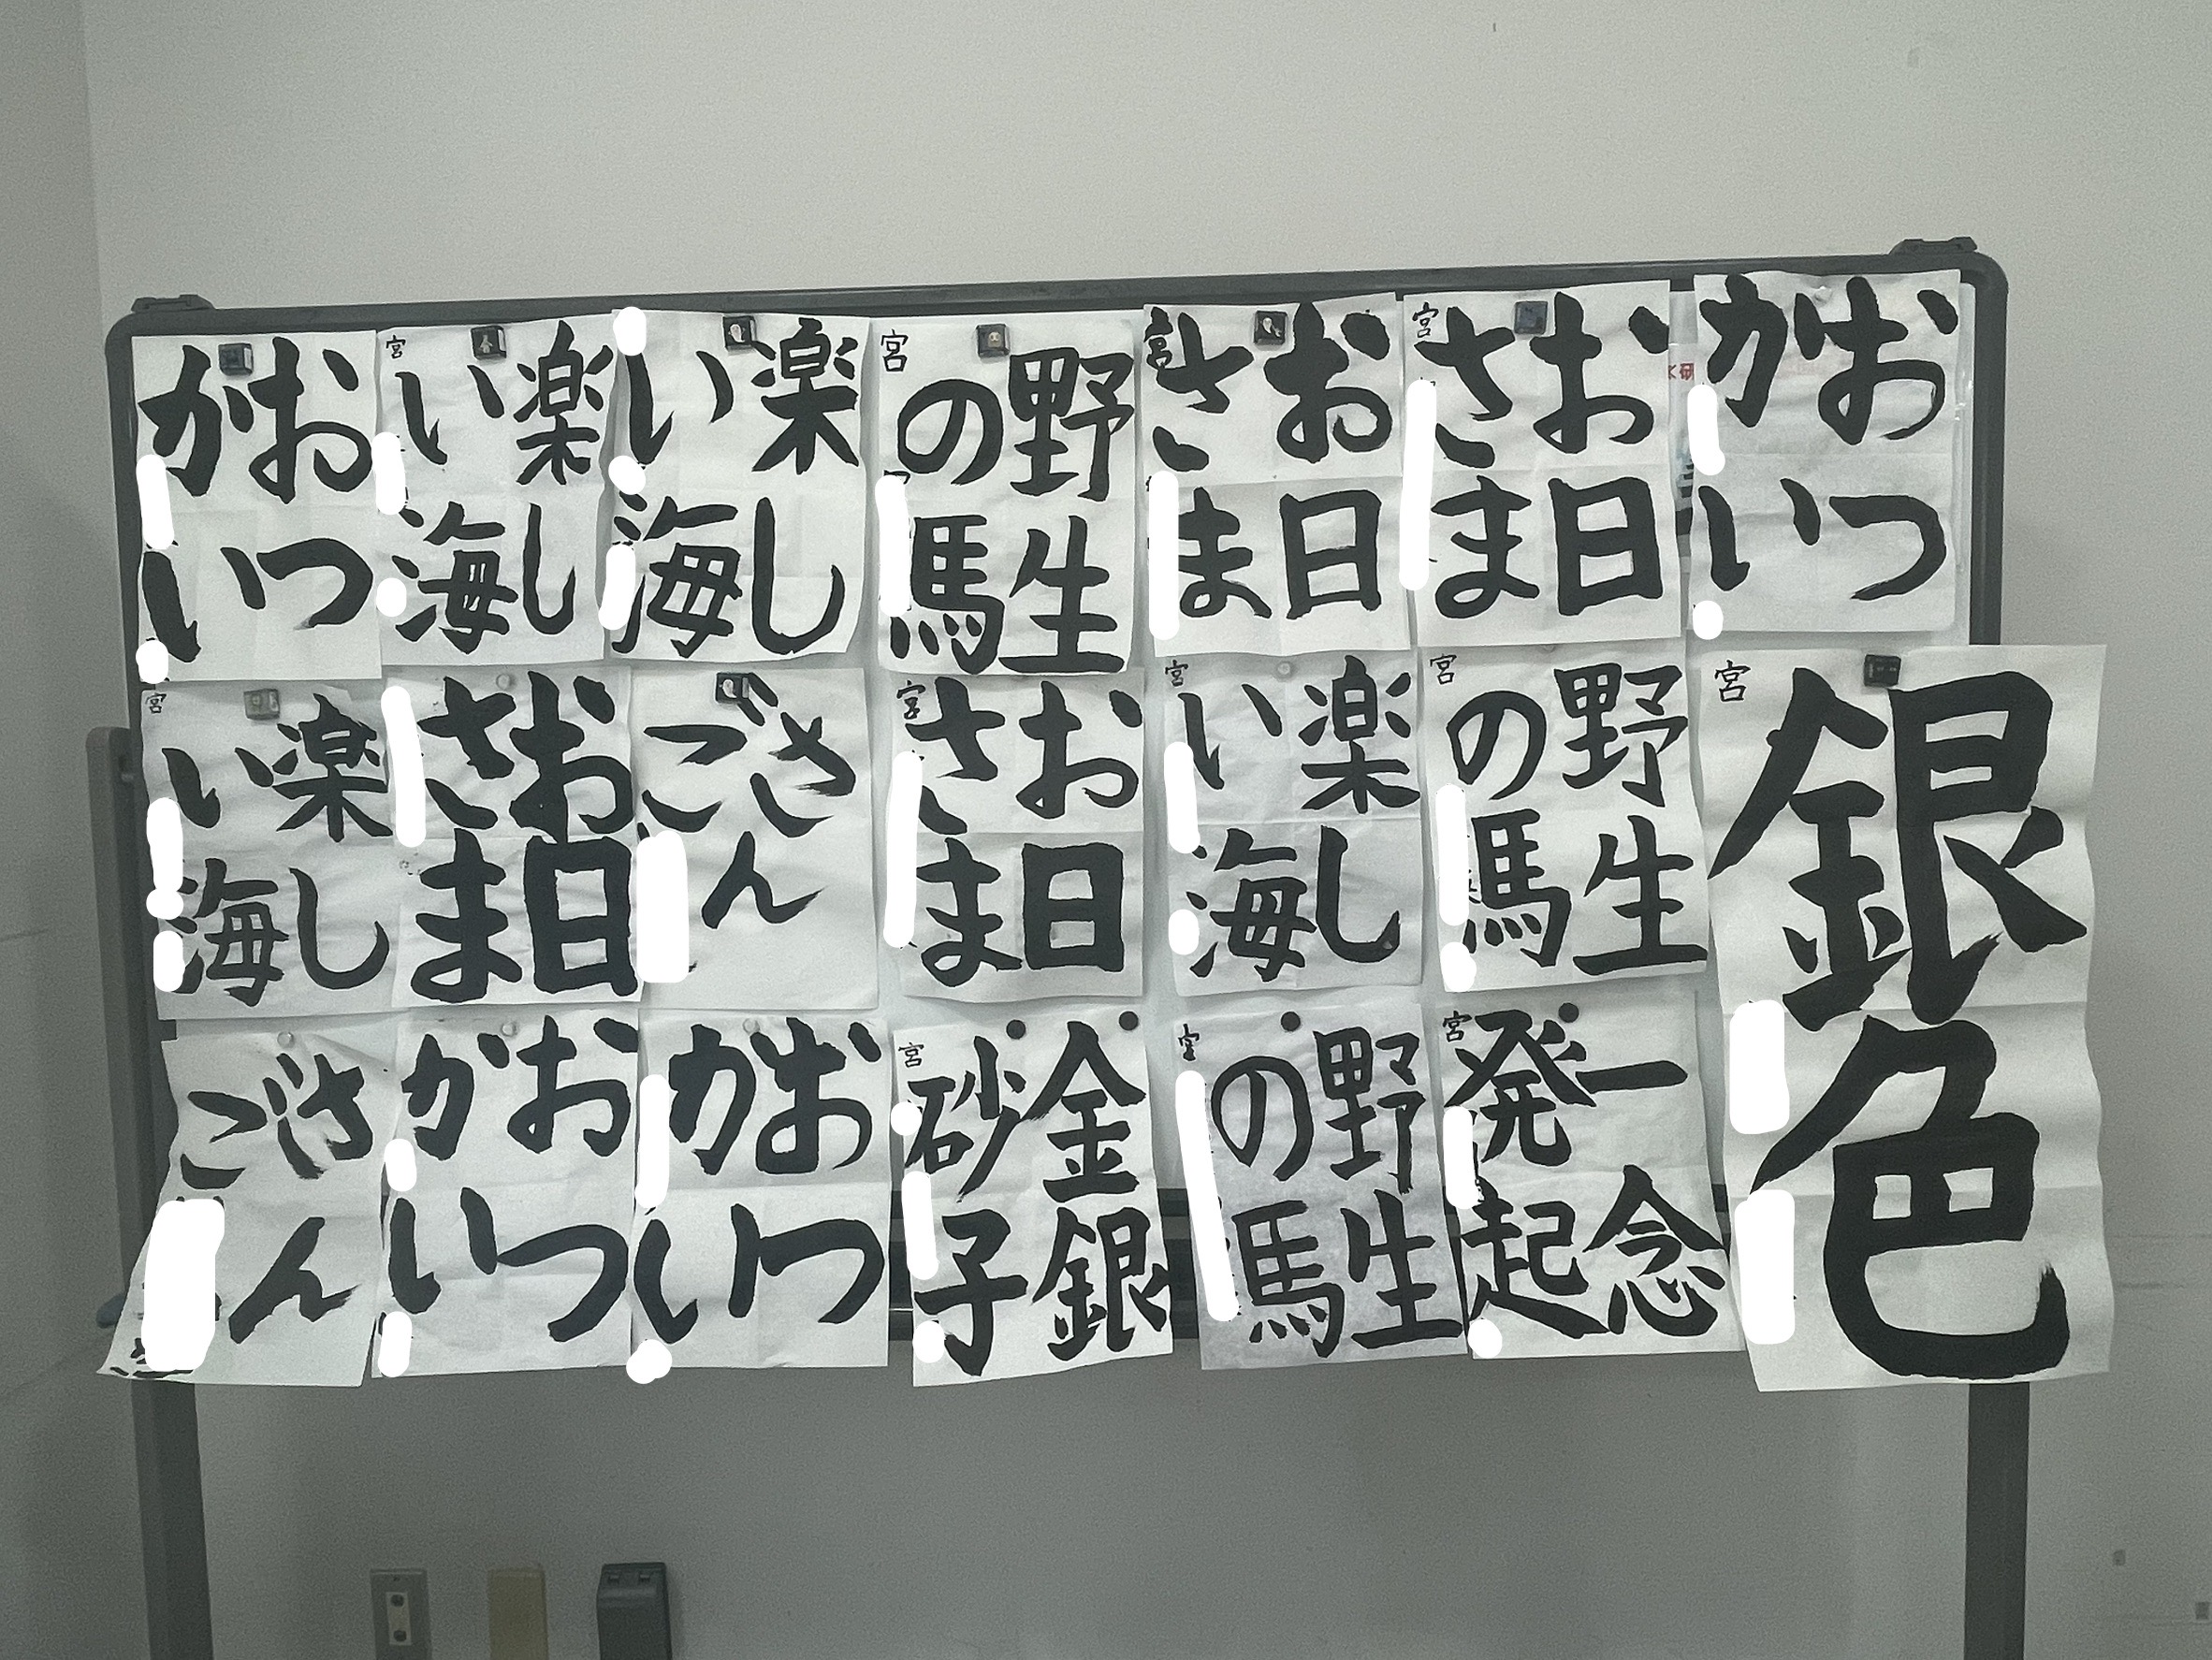 おつ
かい
お日
さま
宮
お日
さま
宮
野生
の馬
宮
楽し
い海
楽し
い海
宮
おつ
かい
銀色
宮
野生
の馬
宮
楽し
い海
宮
お日
さま
宮
さん
ご
お日
さま
楽し
い海
宮
一念
発起
宮
野生
の馬
宮
金銀
砂子
宮
おつ
かい
おつ
かい
さん
ご